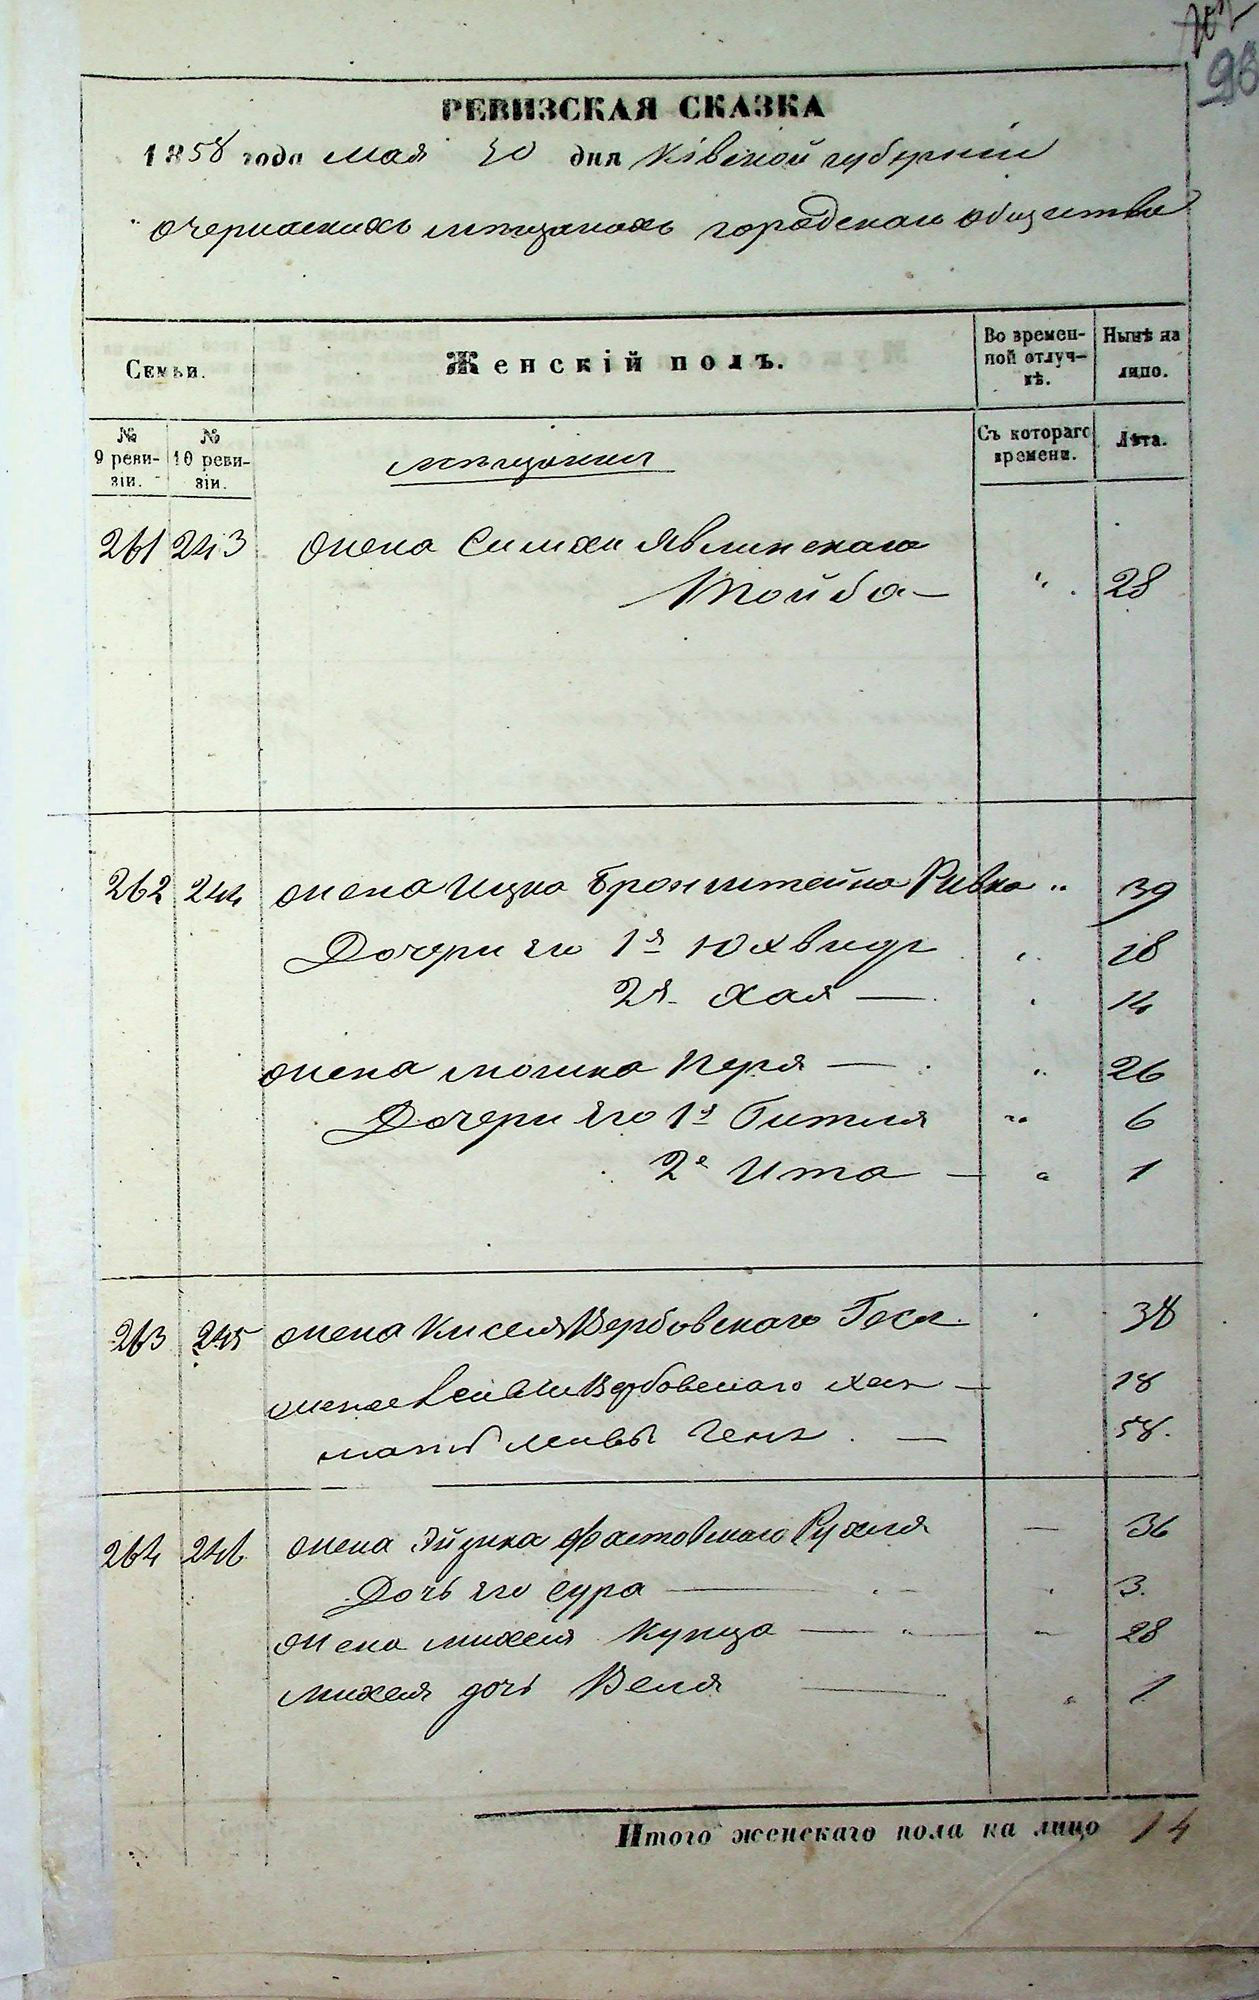 98
РЕВИЗСКАЯ СКАЗКА
1858 года мая 20 дня Кіевской губерніи
о черкаскихъ мѣщанахъ городскаго общества
Семьи.
Женскій полъ.
Во временной отлучкѣ.
Нынѣ на лицо.
№ 9 ревизіи.
№ 10 ревизіи.
мѣщанки
Съ котораго времени.
Лѣта.
261 243 жена Симхи Явлинскаго
Тойба — " 28
262 244 жена Ицка Бронштейна Ривка " 39
Дочери его 1я Юхвидъ " 18
2я Хая — " 14
жена Мошка Перя — " 26
Дочери его 1я Гитля " 6
2я Ита — " 1
263 245 жена Киселя Вербовскаго Гися 38
жена Вербовскаго Хая — 18
мать Геня — 58.
264 246 жена Эйзика Фастовскаго Рухля — 36
Дочь его Сура — " 3.
жена Михеля Купца — " — 28
Михеля дочь Веля — " 1
Итого женскаго пола на лицо 14